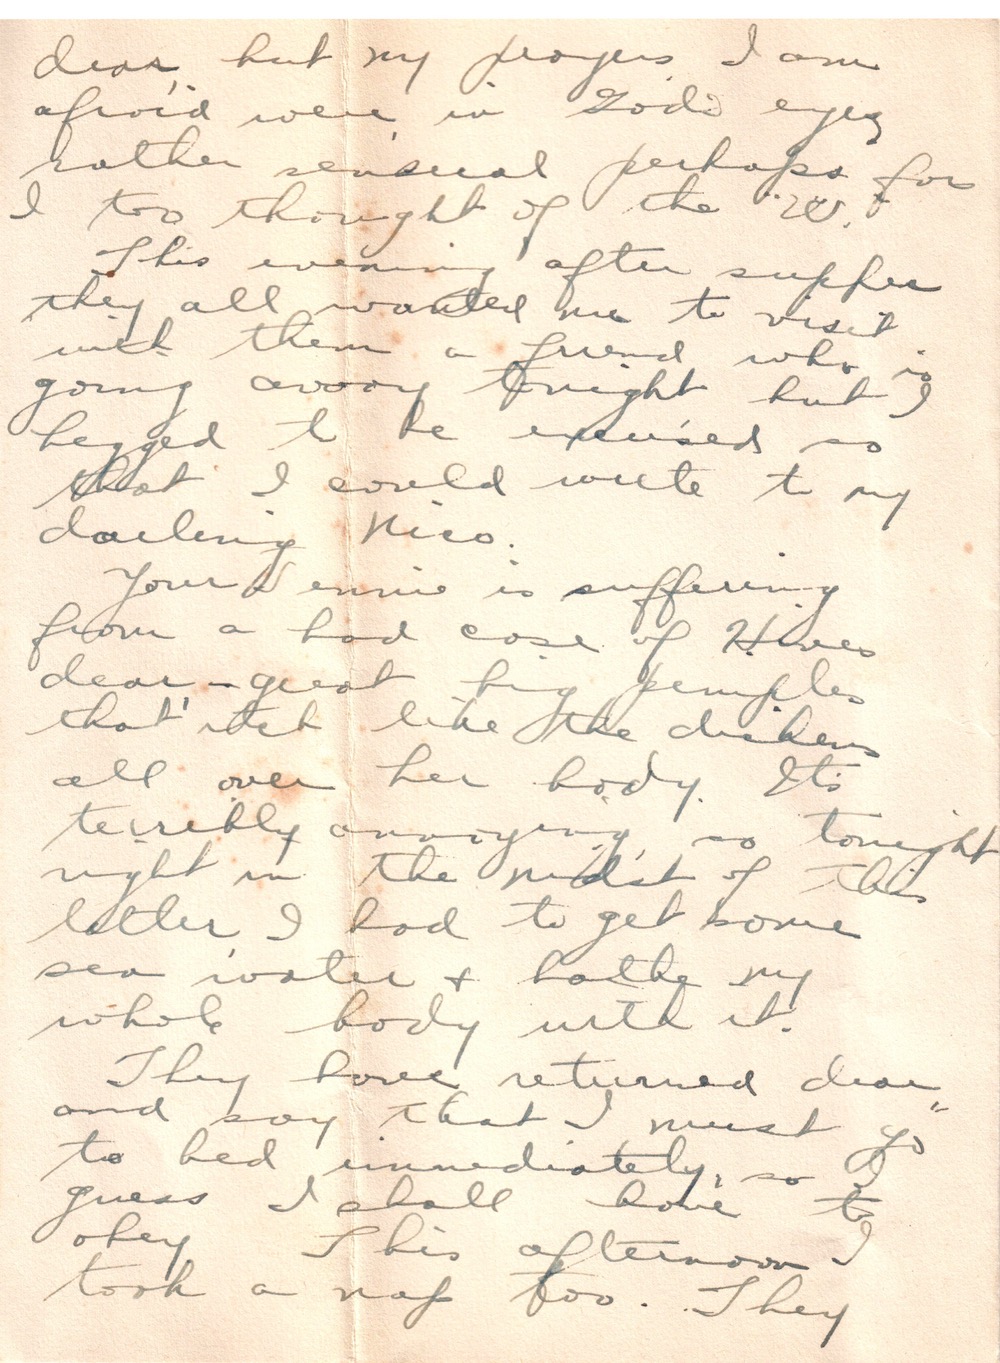 dear, but my prayers I am
afraid were in God's eyes
rather sensual perhaps for
I too thought of the "W."
This evening after supper
they all wanted me to visit
with them a friend who is
going away tonight but I
begged to be excused so
that I could write to my
darling Nico.
Your Jennie is suffering
from a bad case of Hives
dear - great big pimples
that itch like the dickens
all over her body. Its
terribly annoying, so tonight
right in the midst of this
letter I had to get some
sea water & bathe my
whole body with it.
They have returned dear,
and say that I must go
to bed immediately, so I
guess I shall have to
obey This afternoon I
took a nap too. They